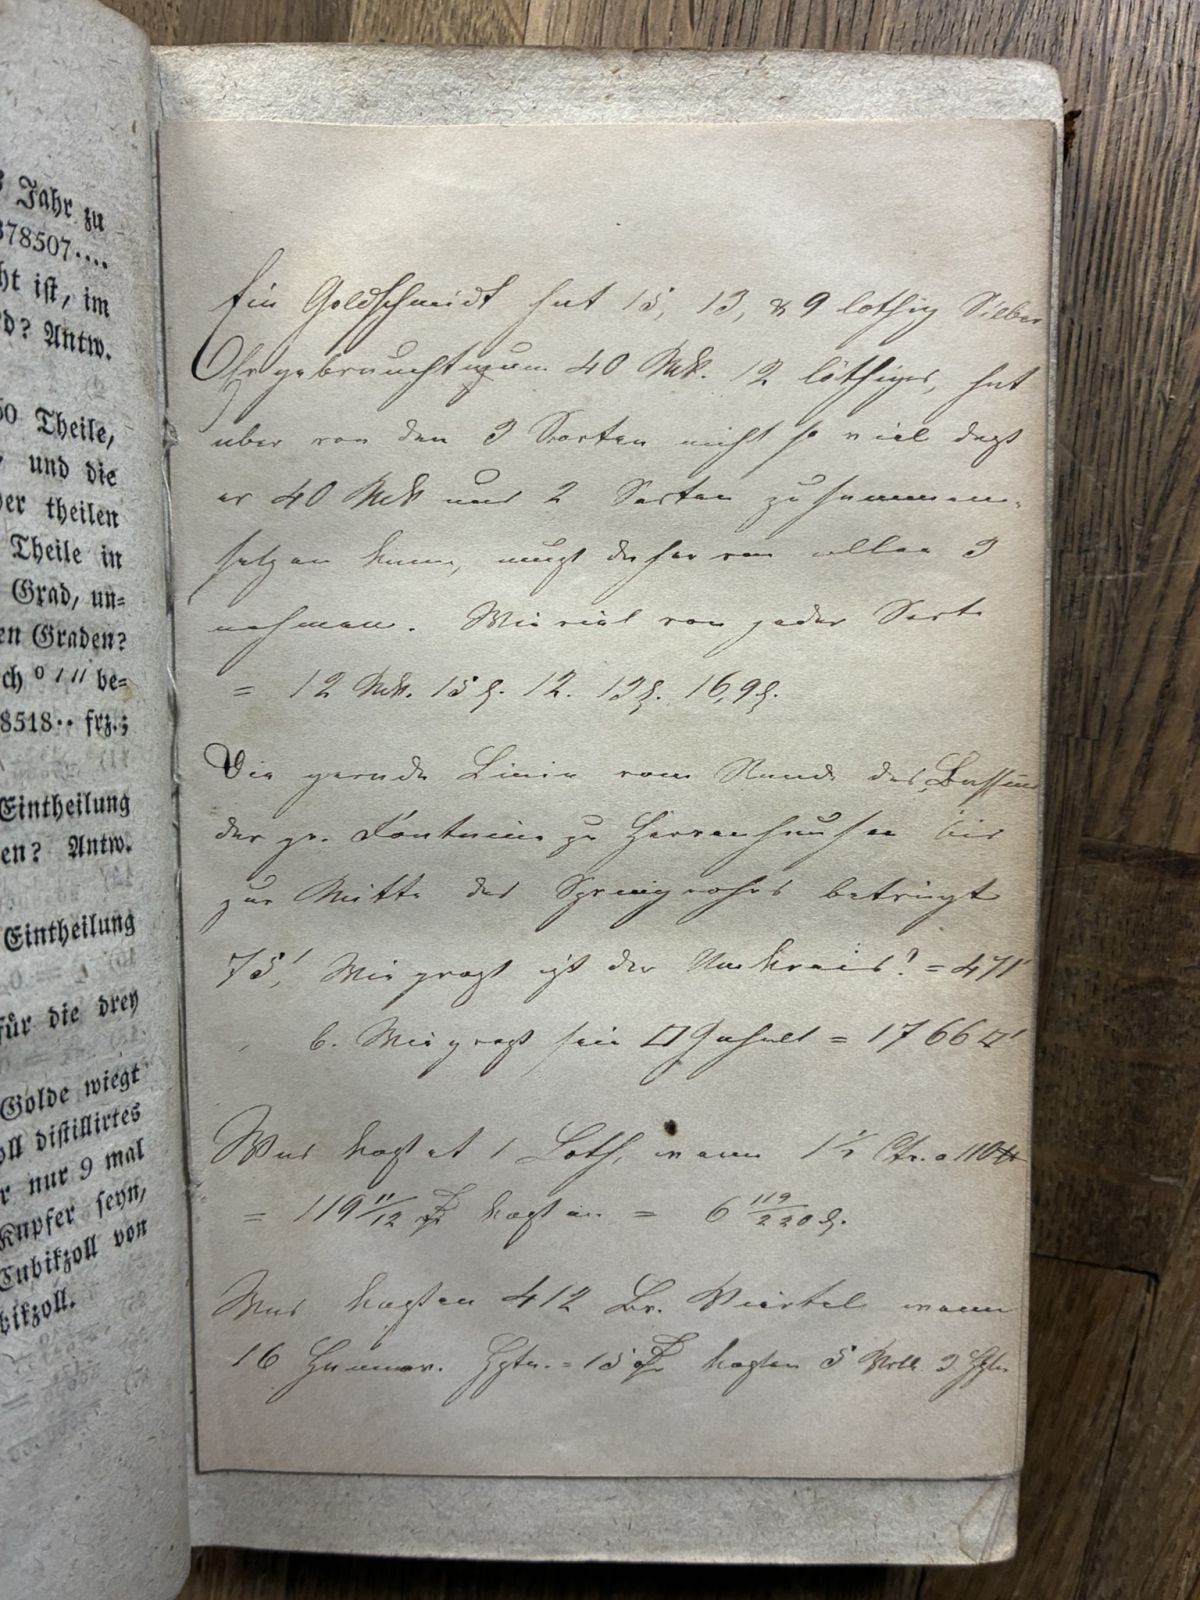 3 Jahr zu
378507....
ht ist, im
d? Antw.
50 Theile,
und die
der theilen
Theile in
Grad, un=
en Graden?
ch ° ′ ″ be=
8518·· frz.;
Eintheilung
en? Antw.
Eintheilung
für die drey
Golde wiegt
oll distillirtes
r nur 9 mal
Kupfer seyn,
Cubikzoll von
bikzoll.
Ein Goldschmidt hat 15, 13, & 9 löthig Silber
Er gebraucht zum 40 Mk. 12 löthiges, hat
aber von den 3 Sorten nicht so viel daß
er 40 Mk aus 2 Sorten zusammen-
setzen kann, muß daher von allen 3
nehmen. Wie viel von jeder Sorte
= 12 Mk. 15 l. 12. 13 l. 16, 9 l.
Die gerade Linie vom Rande des Bassins
der gr. Fontaine zu Herrenhausen bis
zur Mitte des Springrohrs beträgt
75′, Wie groß ist der Umkreis? = 471′
b. Wie groß sein □ Inhalt = 1766 □′
Was kostet 1 Loth, wann 1½ Ctr. a 110 ℔
= 119 11/12 kosten = 6 119/220 d.
Was kosten 412 Br. Viertel wann
16 Hannov. = 15 kosten 5 3